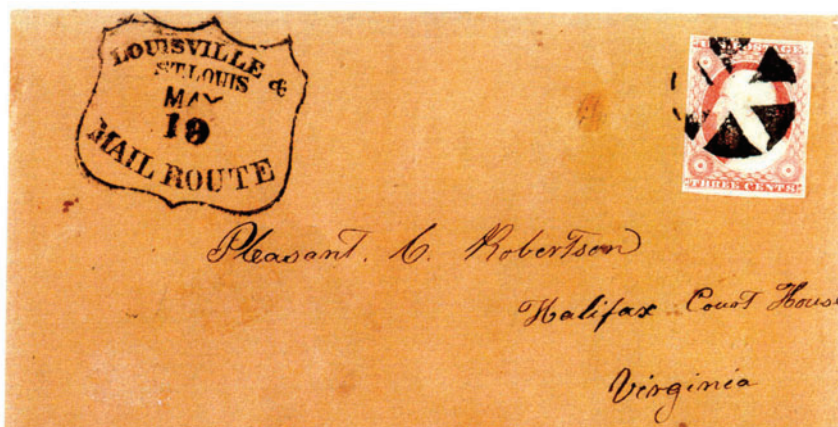 LOUISVILLE &
ST. LOUIS
MAY
19
MAIL ROUTE
POSTAGE
THREE CENTS
Pleasant. C. Robertson
Halifax Court House
Virginia